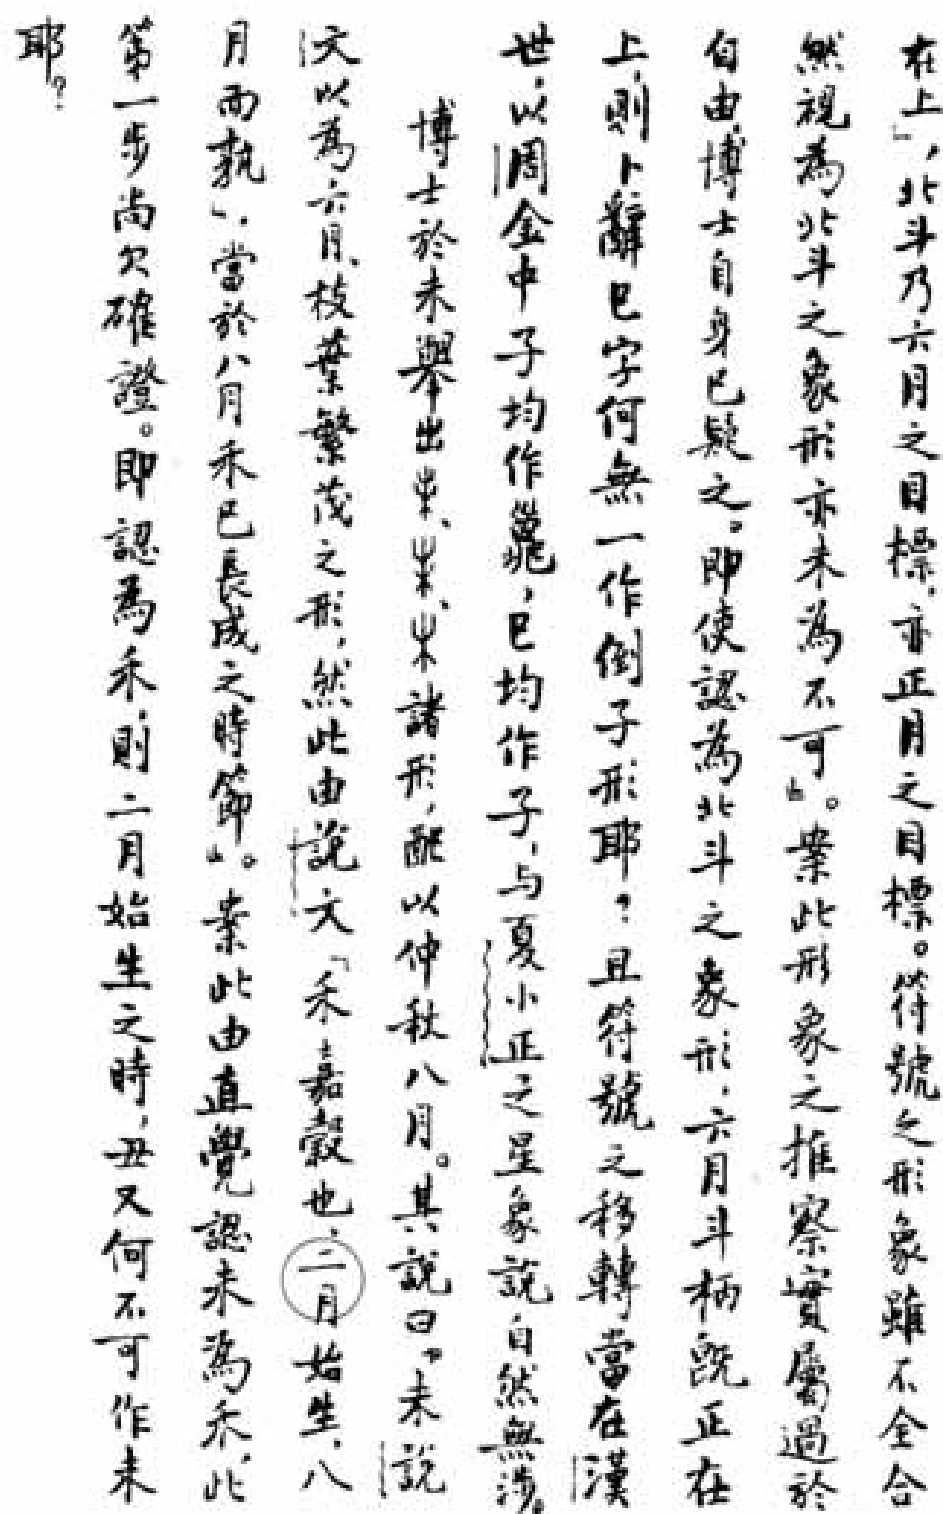 在上」，北斗乃六月之目標，亦正月之目標。符號之形象雖不全合
然視為北斗之象形亦未為不可」。案此形象之推察實屬過於
自由，博士自身已疑之。即使認為北斗之象形，六月斗柄既正在
上，則卜辭巳字何無一作倒子形耶？且符號之移轉當在漢
世，以周金中子均作，巳均作子，与夏小正之星象說自然無涉。
博士於未舉出諸形，配以仲秋八月。其說曰，未說
文以為六月，枝葉繁茂之形，然此由說文「禾嘉穀也，二月始生，八
月而孰」，當於八月禾已長成之時節」。案此由直覺認未為禾，此
第一步尚欠確證。即認為禾，則二月始生之時，丑又何不可作未
耶？